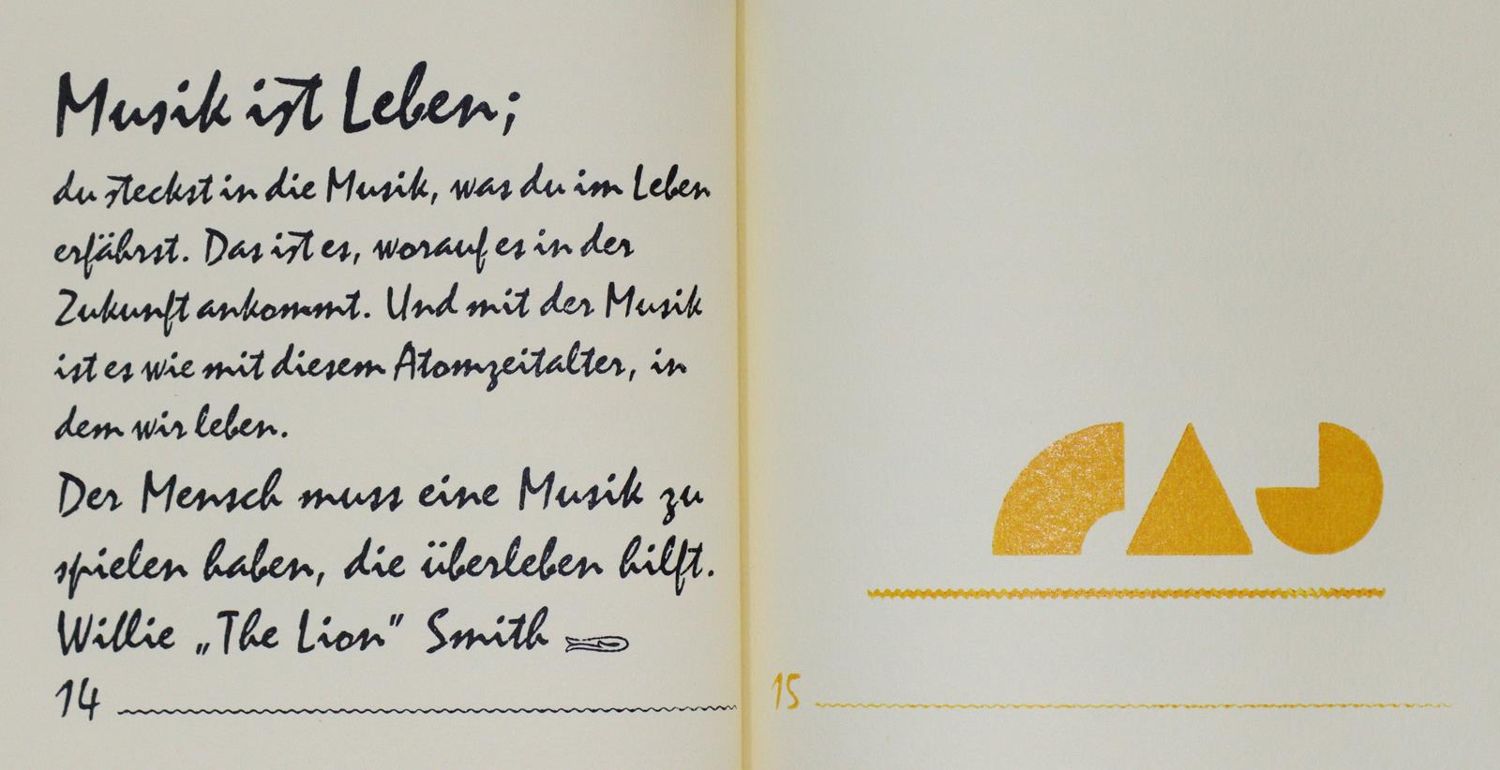 Musik ist Leben;
du steckst in die Musik, was du im Leben
erfährst. Das ist es, worauf es in der
Zukunft ankommt. Und mit der Musik
ist es wie mit diesem Atomzeitalter, in
dem wir leben.
Der Mensch muss eine Musik zu
spielen haben, die überleben hilft.
Willie „The Lion” Smith
14
15